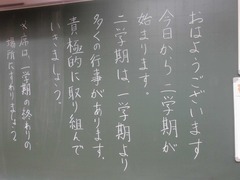 おはようございます
今日から二学期が
始まります。
二学期は、一学期より
多くの行事があります。
積極的に取り組んで
いきましょう。
※席は、一学期の終わりの
場所にすわりましょう。